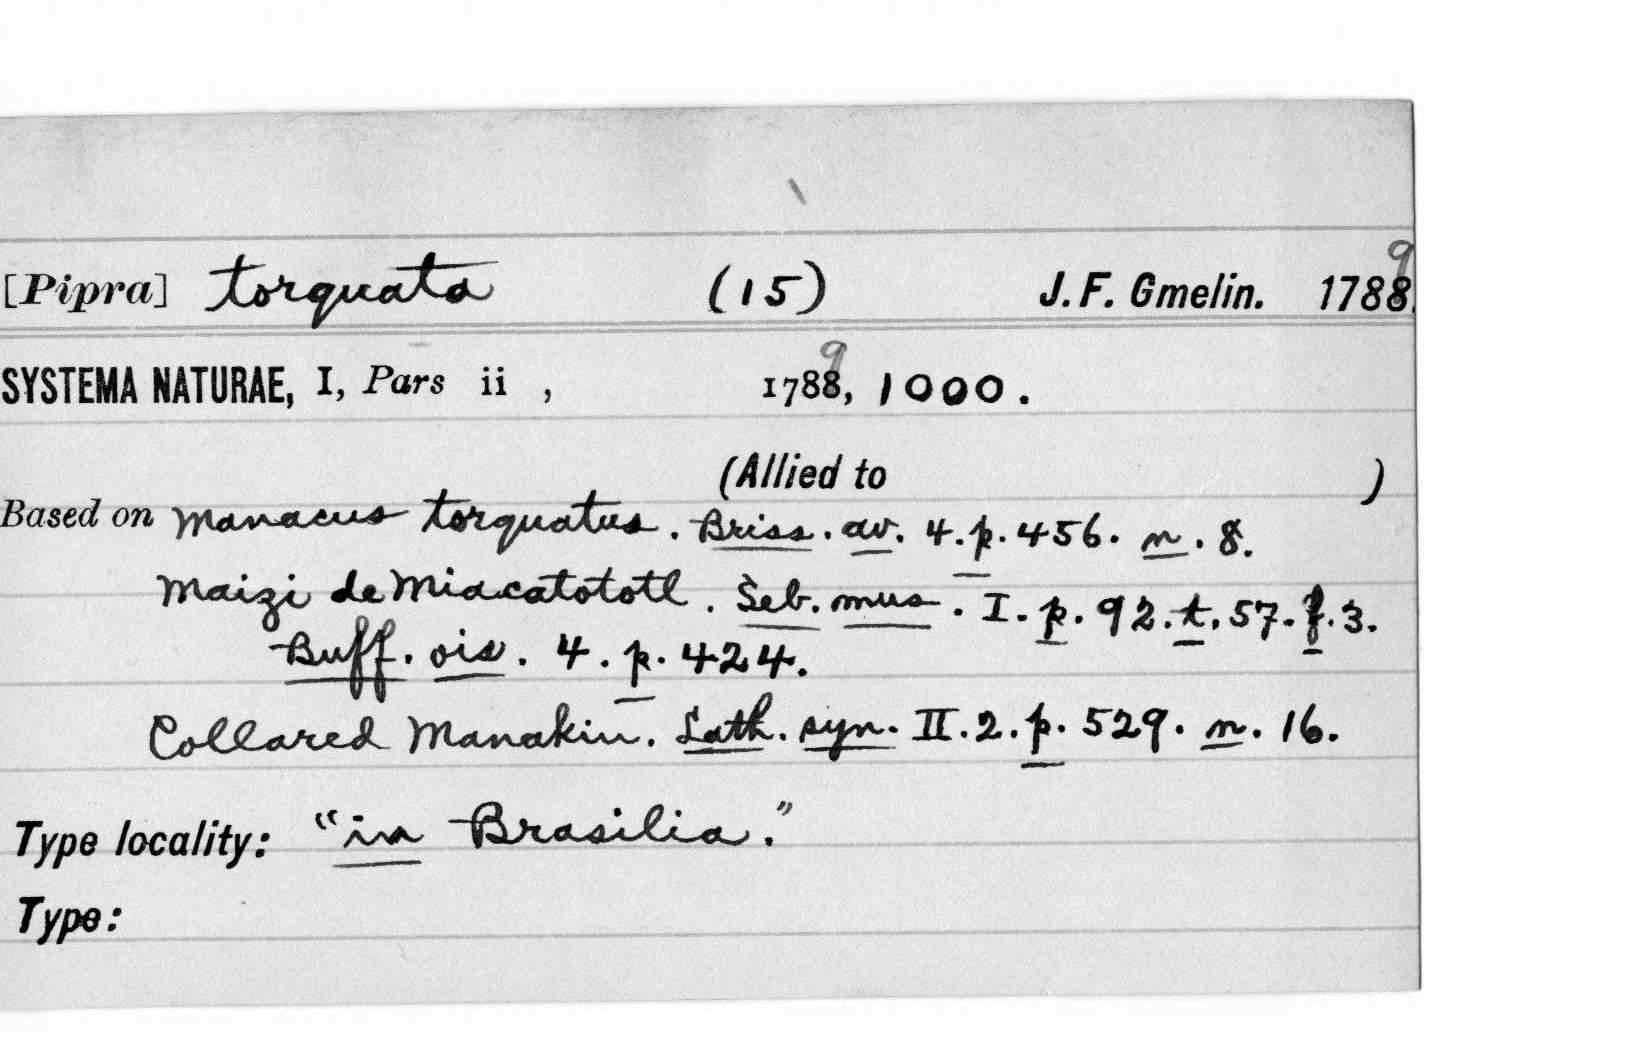 [Pipra] torquata (15) J. F. Gmelin. 17889.
SYSTEMA NATURAE, I, Pars ii , 17889, 1000.
(Allied to )
Based on Manacus torquatus. Briss. av. 4. p. 456. n. 8.
Maizi de Miacatototl. Seb. mus. I. p. 92. t. 57. f. 3.
Buff. ois. 4. p. 424.
Collared Manakin. Lath. syn. II. 2. p. 529. n. 16.
Type locality: "in Brasilia."
Type: